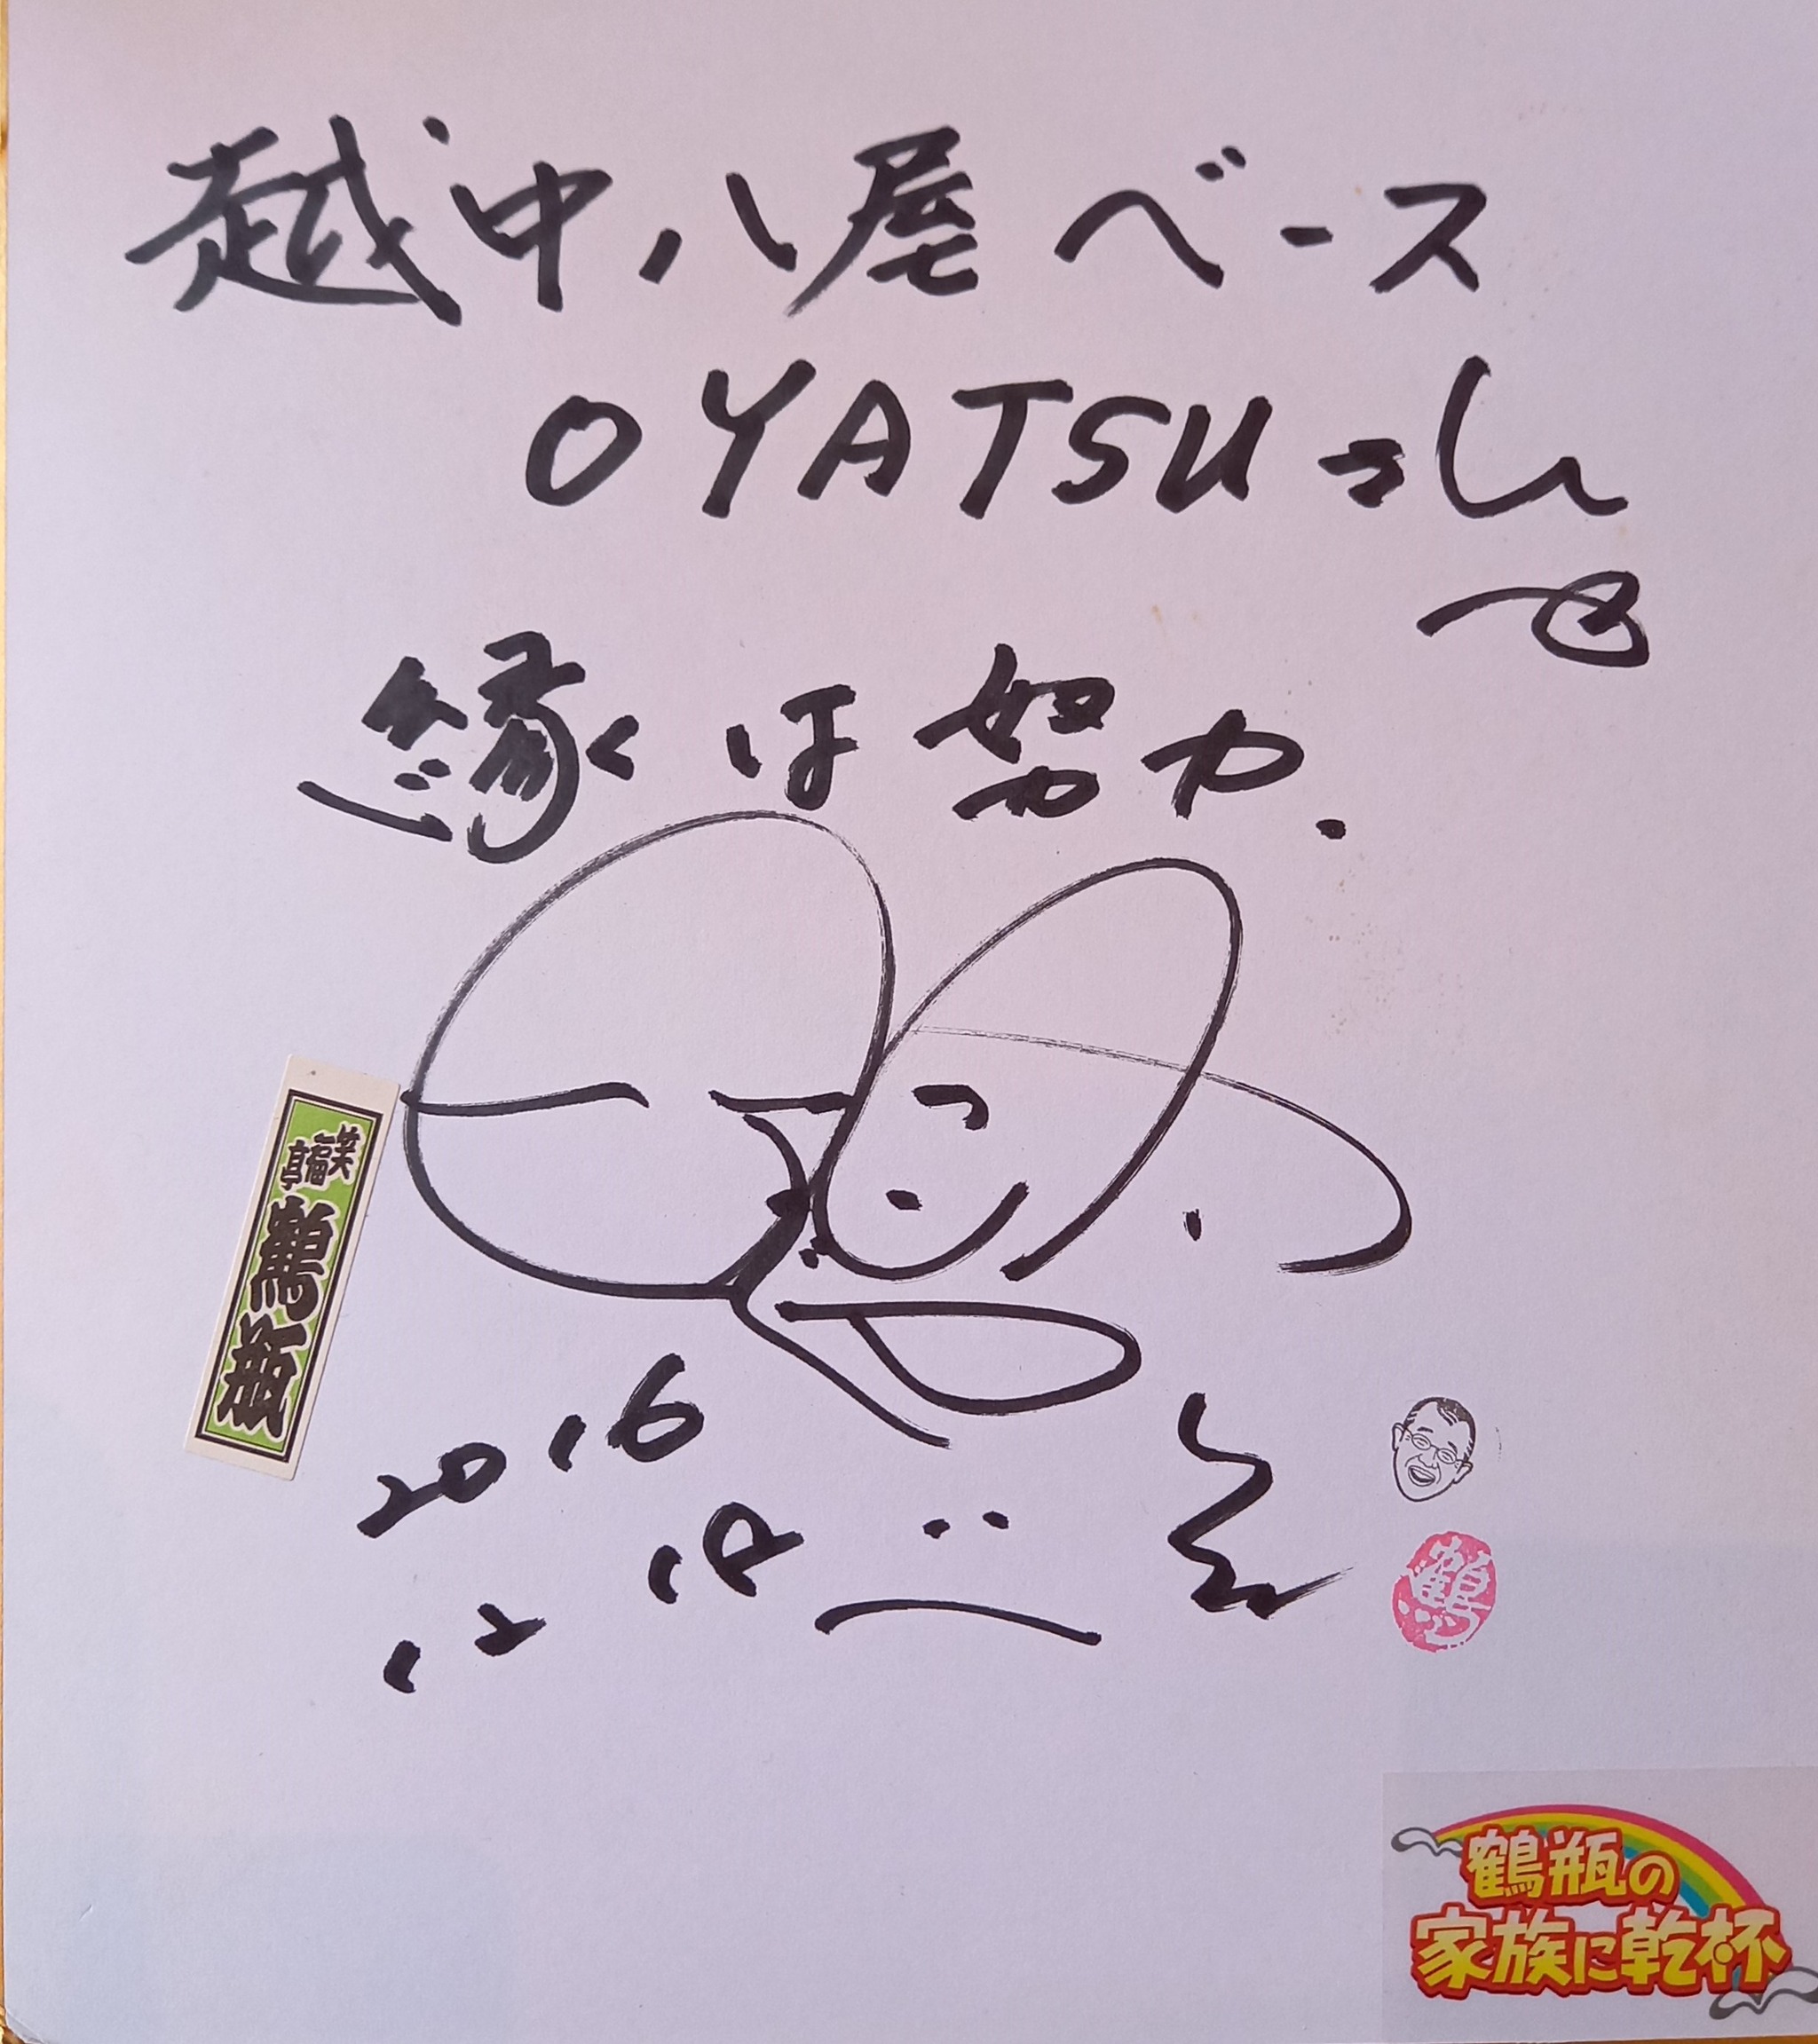 越中八尾ベース
OYATSUさん
江
縁は努力.
笑福亭
鶴瓶
2016
12 12
鶴
鶴瓶の
家族に乾杯